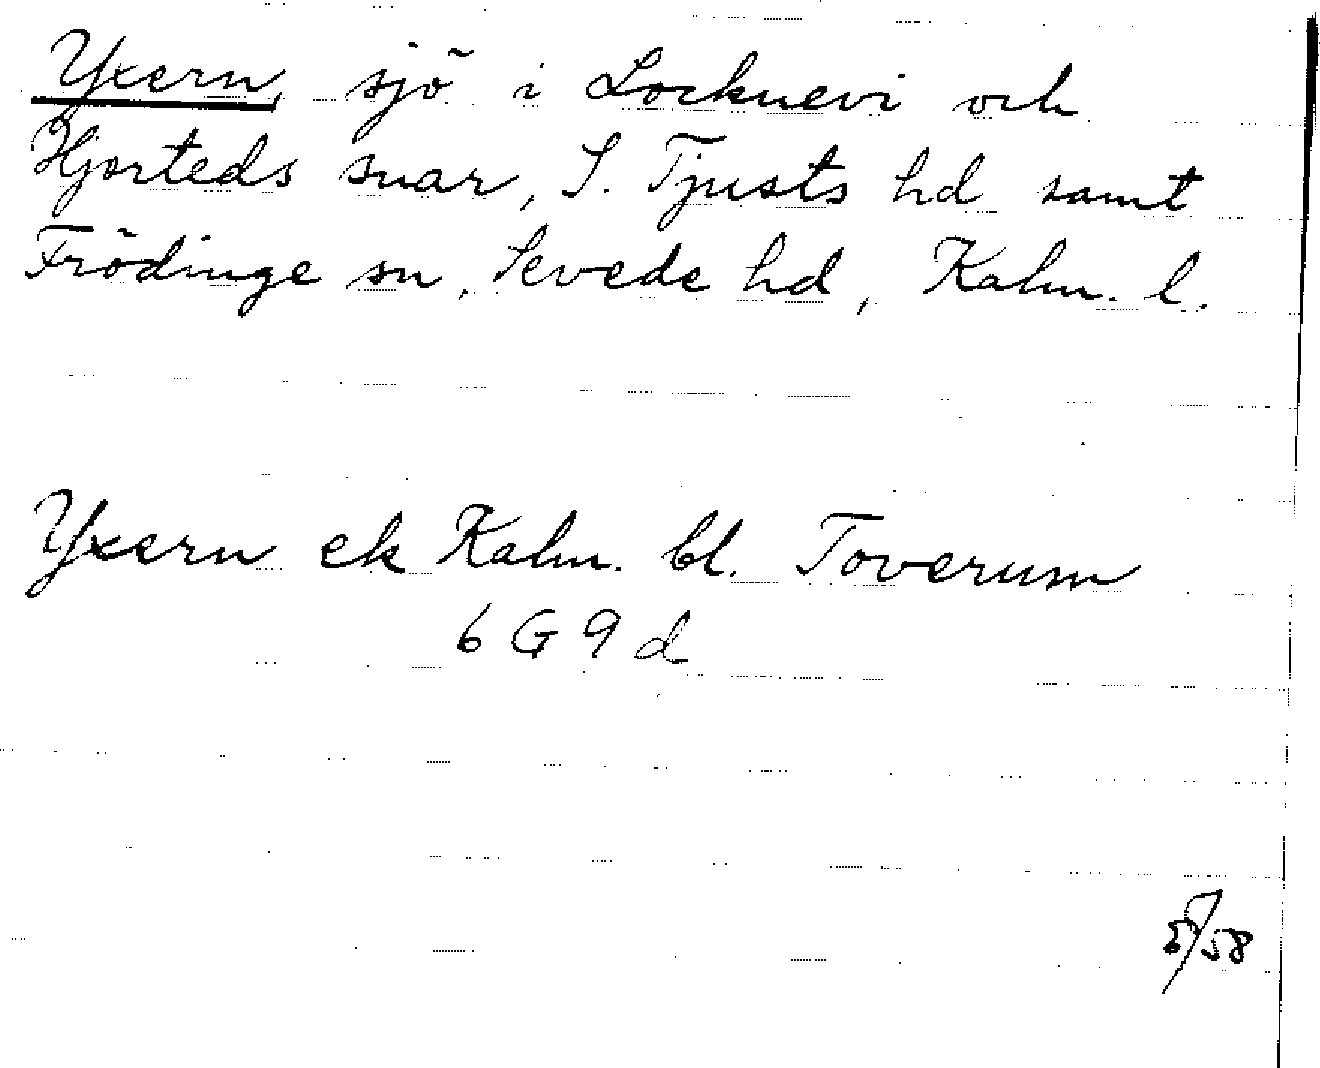 Yxern, sjö i Locknevi och
Hjorteds snar, S. Tjusts hd samt
Frödinge sn, Sevede hd, Kalm. l.
Yxern ek Kalm. bl. Toverum
6 G 9 d
/58